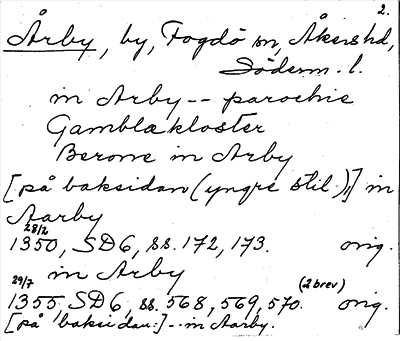 2.
Årby, by, Fogdö sn, Åkers hd,
Söderm. l.
in Arby -- parochie
Gamblækloster
Berone in Arby
[på baksidan (yngre stil:)] in
Aarby
28/2
1350, SD6, ss. 172, 173. orig.
in Arby
29/7 (2 brev)
1355, SD6, ss. 568, 569, 570. orig.
[på baksidan:] -- in Aarby.